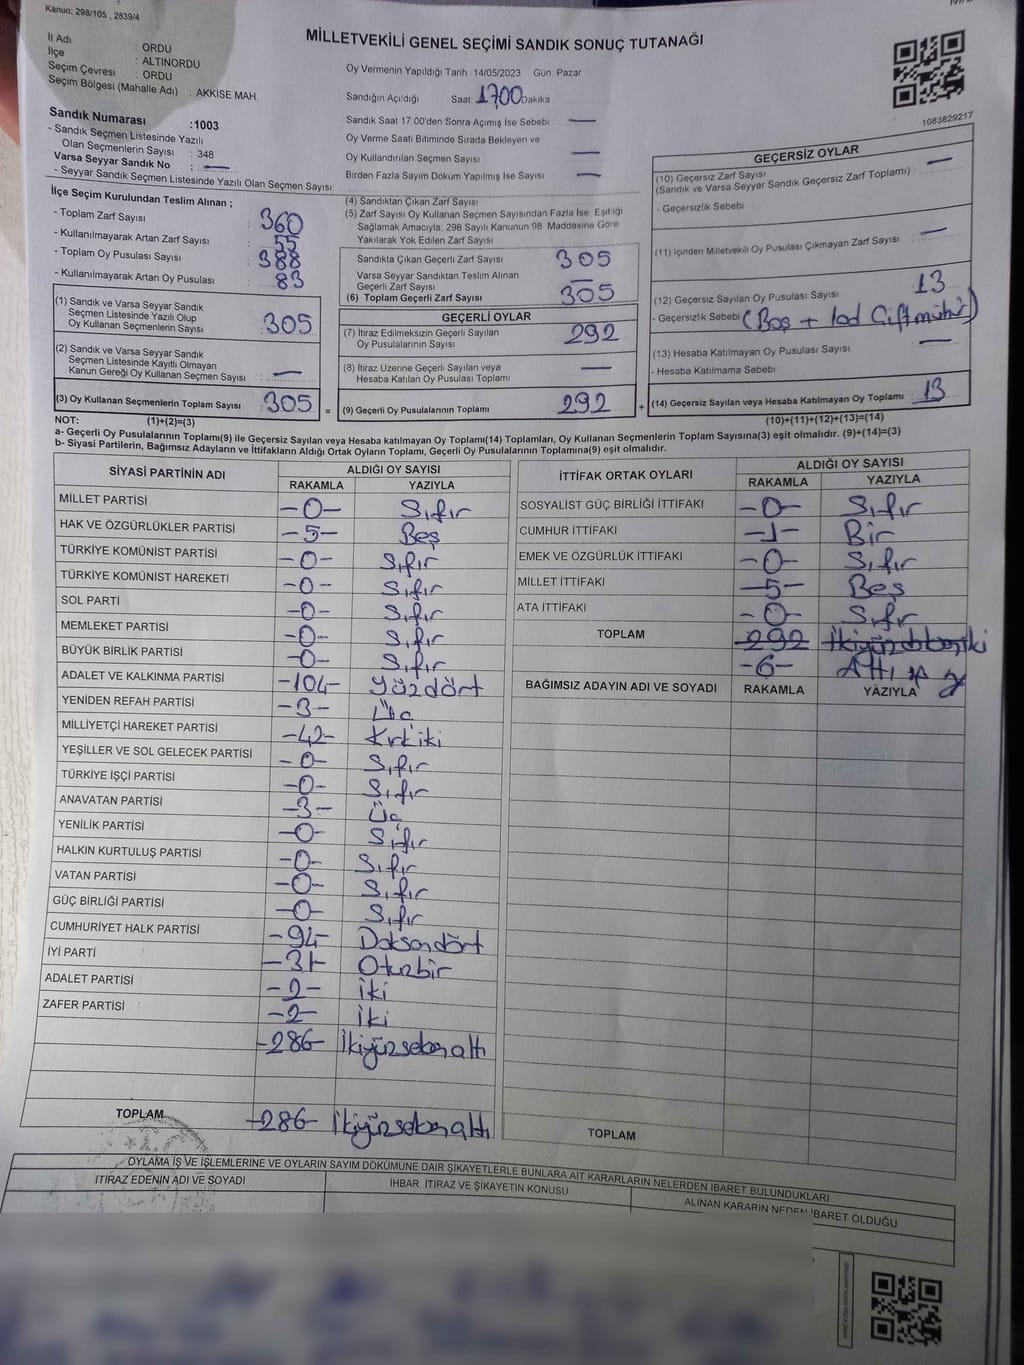 Kanun; 298/105 , 2839/4
MİLLETVEKİLİ GENEL SEÇİMİ SANDIK SONUÇ TUTANAĞI
İl Adı : ORDU
İlçe : ALTINORDU
Seçim Çevresi : ORDU
Seçim Bölgesi (Mahalle Adı) : AKKİSE MAH.
Sandık Numarası :1003
- Sandık Seçmen Listesinde Yazılı
Olan Seçmenlerin Sayısı : 348
Varsa Seyyar Sandık No : —
- Seyyar Sandık Seçmen Listesinde Yazılı Olan Seçmen Sayısı:
Oy Vermenin Yapıldığı Tarih :14/05/2023 Gün: Pazar
Sandığın Açıldığı Saat: 1700 Dakika
Sandık Saat 17:00'den Sonra Açımış İse Sebebi : —
Oy Verme Saati Bitiminde Sırada Bekleyen ve
Oy Kullandırılan Seçmen Sayısı : —
Birden Fazla Sayım Döküm Yapılmış İse Sayısı : —
1083829217
İlçe Seçim Kurulundan Teslim Alınan ;
- Toplam Zarf Sayısı : 360
- Kullanılmayarak Artan Zarf Sayısı : 55
- Toplam Oy Pusulası Sayısı : 388
- Kullanılmayarak Artan Oy Pusulası : 83
(1) Sandık ve Varsa Seyyar Sandık
Seçmen Listesinde Yazılı Olup
Oy Kullanan Seçmenlerin Sayısı : 305
(2) Sandık ve Varsa Seyyar Sandık
Seçmen Listesinde Kayıtlı Olmayan
Kanun Gereği Oy Kullanan Seçmen Sayısı : —
(3) Oy Kullanan Seçmenlerin Toplam Sayısı : 305
(1)+(2)=(3)
(4) Sandıktan Çıkan Zarf Sayısı
(5) Zarf Sayısı Oy Kullanan Seçmen Sayısından Fazla İse, Eşitliği
Sağlamak Amacıyla, 298 Sayılı Kanunun 98. Maddesine Göre
Yakılarak Yok Edilen Zarf Sayısı
Sandıkta Çıkan Geçerli Zarf Sayısı 305
Varsa Seyyar Sandıktan Teslim Alınan
Geçerli Zarf Sayısı —
(6) Toplam Geçerli Zarf Sayısı 305
GEÇERLİ OYLAR
(7) İtiraz Edilmeksizin Geçerli Sayılan
Oy Pusulalarının Sayısı : 292
(8) İtiraz Üzerine Geçerli Sayılan veya
Hesaba Katılan Oy Pusulası Toplamı : —
= (9) Geçerli Oy Pusulalarının Toplamı 292 +
GEÇERSİZ OYLAR
(10) Geçersiz Zarf Sayısı
(Sandık ve Varsa Seyyar Sandık Geçersiz Zarf Toplamı) : —
- Geçersizlik Sebebi
(11) İçinden Milletvekili Oy Pusulası Çıkmayan Zarf Sayısı : —
(12) Geçersiz Sayılan Oy Pusulası Sayısı : 13
- Geçersizlik Sebebi (Boş + Çift mühür)
(13) Hesaba Katılmayan Oy Pusulası Sayısı : —
- Hesaba Katılmama Sebebi :
(14) Geçersiz Sayılan veya Hesaba Katılmayan Oy Toplamı : 13
(10)+(11)+(12)+(13)=(14)
NOT:
a- Geçerli Oy Pusulalarının Toplamı(9) ile Geçersiz Sayılan veya Hesaba katılmayan Oy Toplamı(14) Toplamları, Oy Kullanan Seçmenlerin Toplam Sayısına(3) eşit olmalıdır. (9)+(14)=(3)
b- Siyasi Partilerin, Bağımsız Adayların ve İttifakların Aldığı Ortak Oyların Toplamı, Geçerli Oy Pusulalarının Toplamına(9) eşit olmalıdır.
SİYASİ PARTİNİN ADI ALDIĞI OY SAYISI
RAKAMLA YAZIYLA
MİLLET PARTİSİ -0- Sıfır
HAK VE ÖZGÜRLÜKLER PARTİSİ -5- Beş
TÜRKİYE KOMÜNİST PARTİSİ -0- Sıfır
TÜRKİYE KOMÜNİST HAREKETİ -0- Sıfır
SOL PARTİ -0- Sıfır
MEMLEKET PARTİSİ -0- Sıfır
BÜYÜK BİRLİK PARTİSİ -0- Sıfır
ADALET VE KALKINMA PARTİSİ -104- Yüzdört
YENİDEN REFAH PARTİSİ -3- Üç
MİLLİYETÇİ HAREKET PARTİSİ -42- Kırkiki
YEŞİLLER VE SOL GELECEK PARTİSİ -0- Sıfır
TÜRKİYE İŞÇİ PARTİSİ -0- Sıfır
ANAVATAN PARTİSİ -3- Üç
YENİLİK PARTİSİ -0- Sıfır
HALKIN KURTULUŞ PARTİSİ -0- Sıfır
VATAN PARTİSİ -0- Sıfır
GÜÇ BİRLİĞİ PARTİSİ -0- Sıfır
CUMHURİYET HALK PARTİSİ -94- Doksandört
İYİ PARTİ -31- Otuzbir
ADALET PARTİSİ -2- İki
ZAFER PARTİSİ -2- İki
-286- İkiyüzseksenaltı
TOPLAM -286- İkiyüzseksenaltı
İTTİFAK ORTAK OYLARI ALDIĞI OY SAYISI
RAKAMLA YAZIYLA
SOSYALİST GÜÇ BİRLİĞİ İTTİFAKI -0- Sıfır
CUMHUR İTTİFAKI -1- Bir
EMEK VE ÖZGÜRLÜK İTTİFAKI -0- Sıfır
MİLLET İTTİFAKI -5- Beş
ATA İTTİFAKI -0- Sıfır
TOPLAM 292 İkiyüzdoksaniki
-6- Altı
BAĞIMSIZ ADAYIN ADI VE SOYADI RAKAMLA YAZIYLA
TOPLAM
OYLAMA İŞ VE İŞLEMLERİNE VE OYLARIN SAYIM DÖKÜMÜNE DAİR ŞİKAYETLERLE BUNLARA AİT KARARLARIN NELERDEN İBARET BULUNDUKLARI
İTİRAZ EDENİN ADI VE SOYADI İHBAR İTİRAZ VE ŞİKAYETİN KONUSU ALINAN KARARIN NEDEN İBARET OLDUĞU